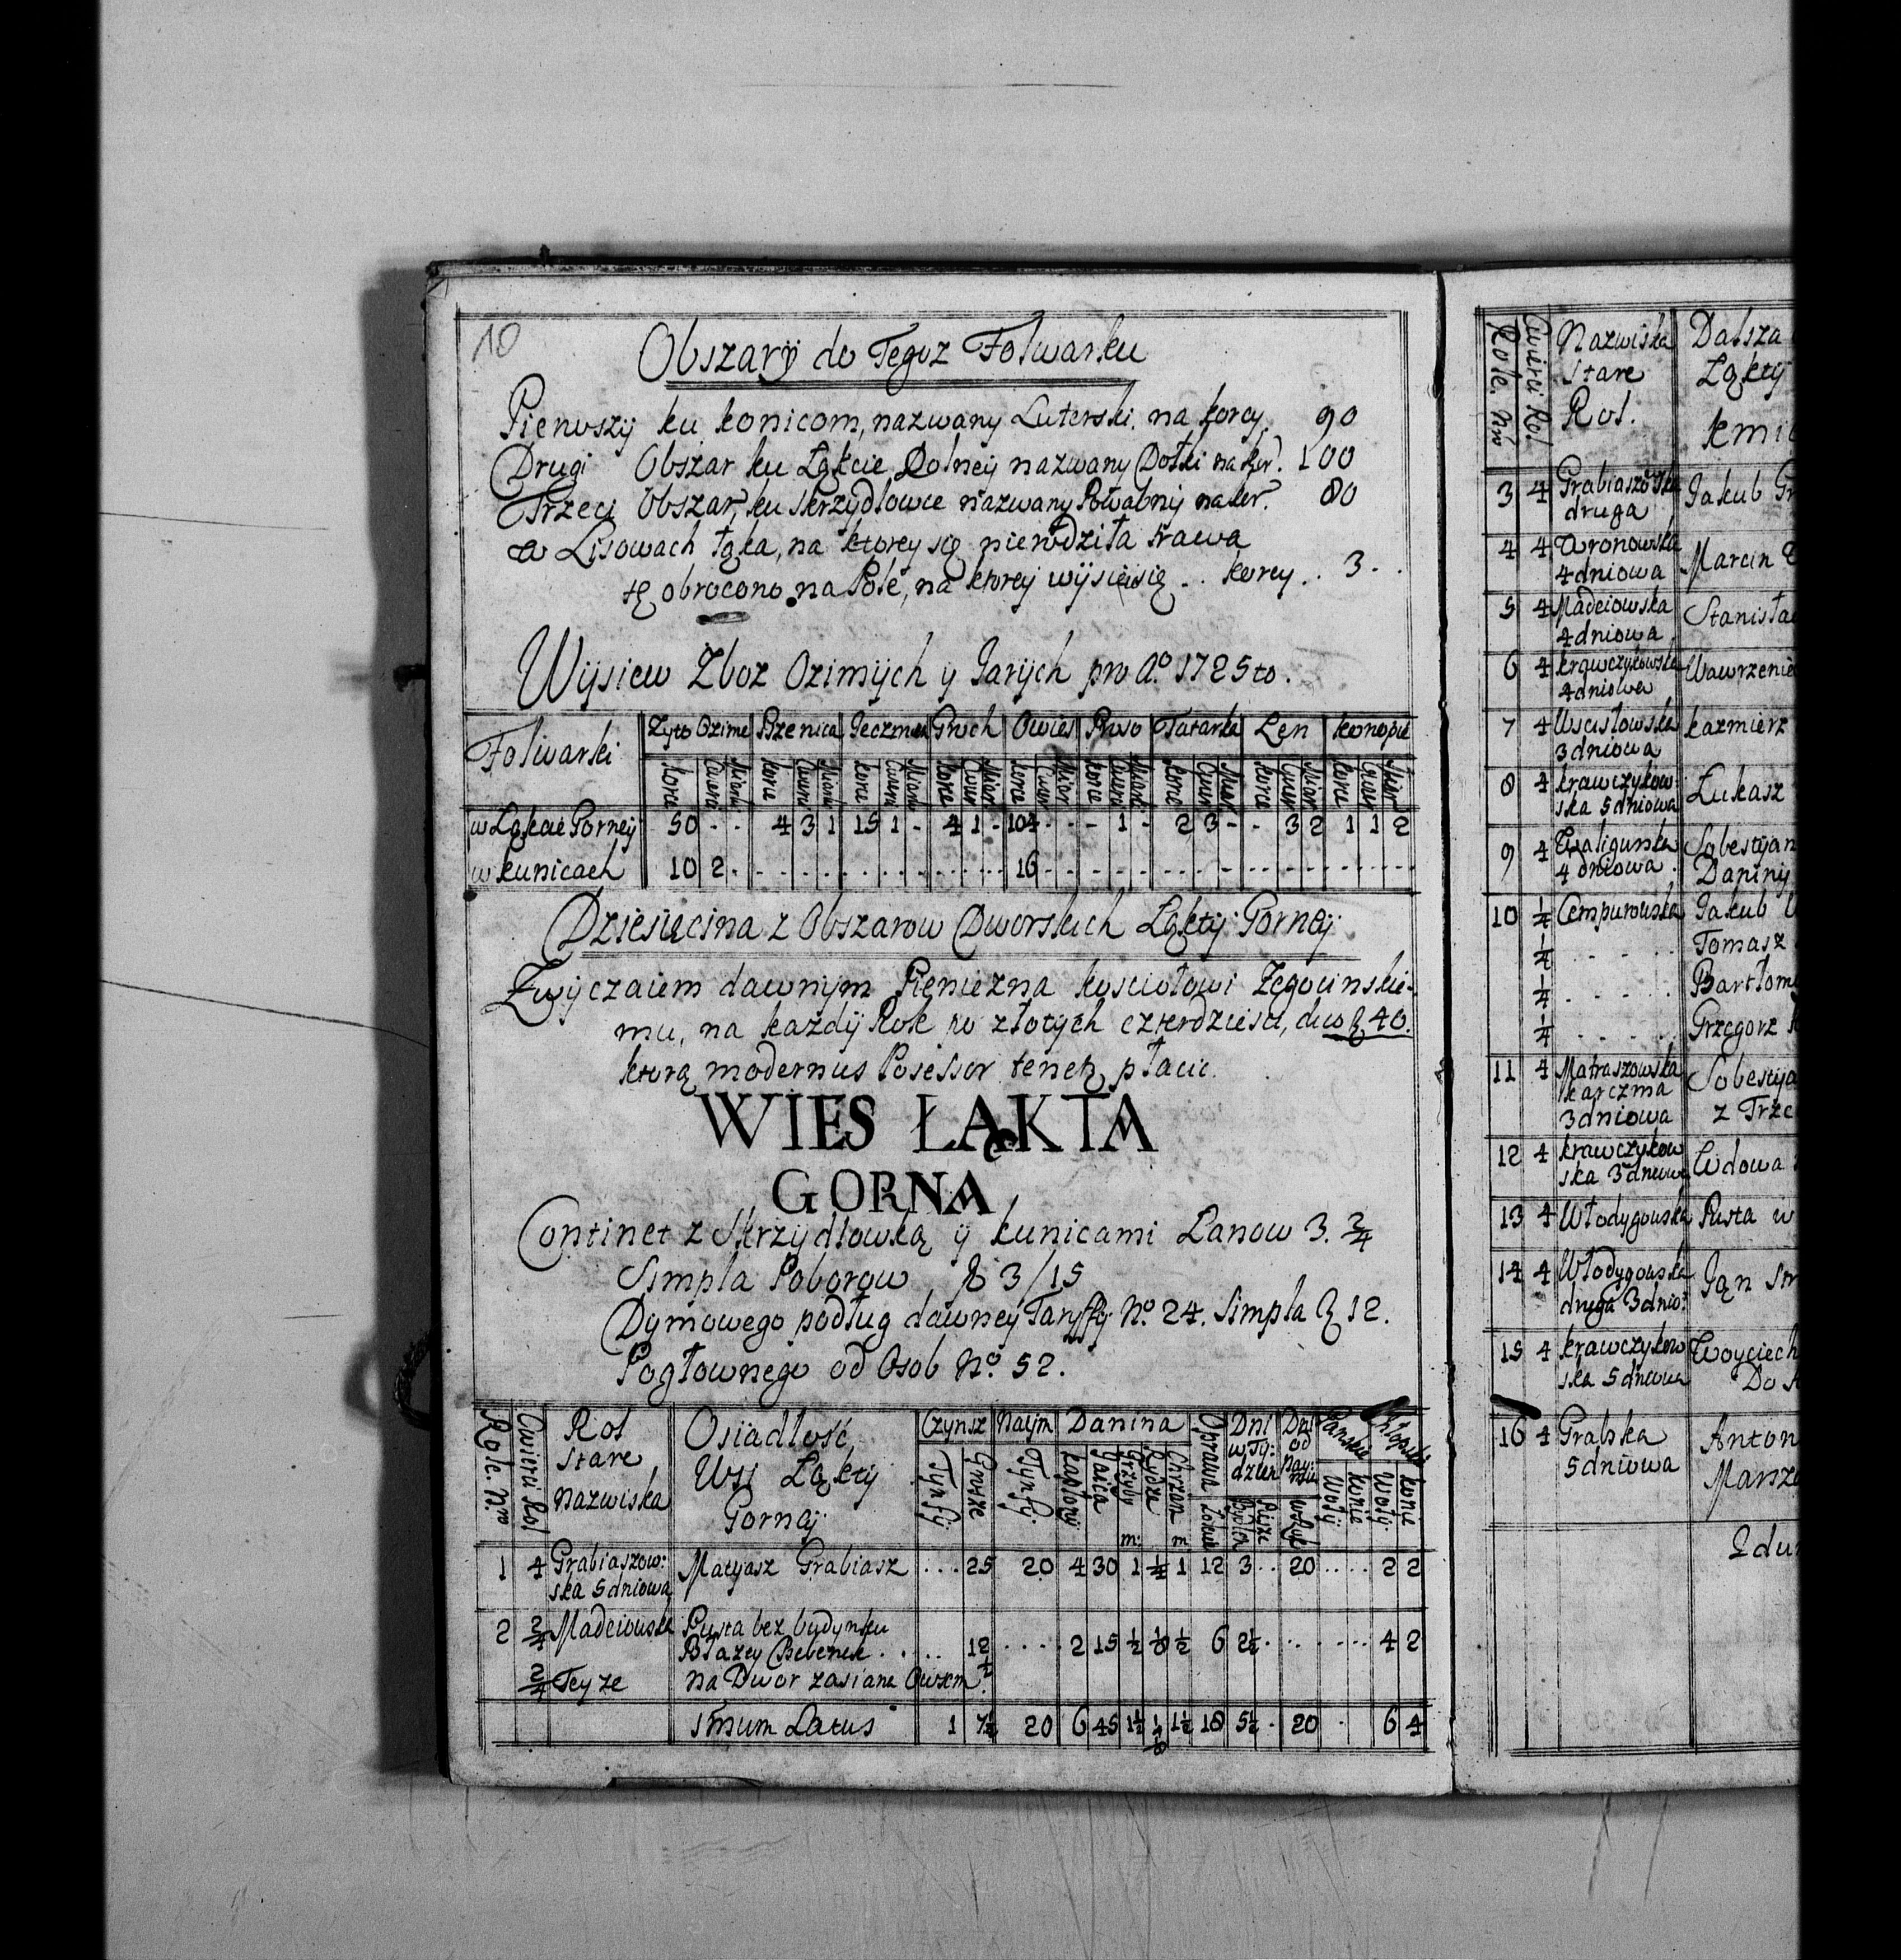 10
Obszary do Tegoz Folwarku
Pierwszy ku konicom, nazwany Luterski, na korcy. 90
Drugi Obszar ku Łąkcie Dolney nazwany Dołki na kor. 100
Trzeci Obszar, ku Skrzydlowce nazwany Powabny na kor. 80
w Lisowach łąka, na ktorey się nierodziła trawa
tę obrocono na Pole, na ktorej wysieie się .. korcy .. 3 ..
Wysiew Zboz Ozimych y Jarych pro Ao. 1725to.
Folwarki Zyto Ozime Pszenica Jeczmien Groch Owies Proso Tatarka Len Konopie
Korce Cwierci Miarki Korce Cwierci Miarki Korce Cwierci Miarki Korce Cwier Miar Korce Cwier Miar Korce Cwierci Miarki Korce Cwier Miar Korce Cwier Miar Korce Cwier Miar
w Łąkcie Gorney 50 - - 4 3 1 15 1 - 4 1 - 104 - - - 1 - 2 3 - - 3 2 1 1 2
w Kunicach 10 2 - - - - - - - - - - 16 - - - - - - - - - - - - - -
Dziesięcina z Obszarow Dworskich Łąkty Gorney
Zwyczaiem dawnym Pienięzna kosciołowi Zegocinskie-
mu, na kazdy Rok po złotych czterdziesci, dico 40.
ktorą modernus Posessor tenetr płacic.
WIES ŁĄKTA
GORNA
Continet z Skrzydlowką y kunicami Łanow 3. 3/4
Simpla Poborow 3/15
Dymowego podług dawney Taryffy No. 24. Simpla 12.
Pogłownego od Osob No. 52.
Role. Nro Cwierci Rol Rol stare nazwiska Osiadłość Wsi Łąkty Gornej Czynsz Naym Danina Oprawa Dni w Ty: dzien Dni od Panskie Chłopskie
Tynfy Grosze Tynfy Kapłony Jaica Grzyby m: Rydze Chrzan m Łokcie Bydłem Pieszo Woły konie Woły konie
1 4 Grabiaszow: ska 5 dniowa Matyasz Grabiasz ... 25 20 4 30 1 1/4 1 12 3 .. 20 .... 2 2
2 2/4 Madeiowska Pusta bez budynku
Błazey Bebenek ..... 12 1/2 .... 2 15 1/2 1/8 1/2 6 2 1/2 . ... .... 4 2
2/4 Teyze na Dwor zasiana Owsem
Smum Latus 1 7 1/2 20 6 45 1 1/2 1/8 1 1/2 18 5 1/2 . 20 . 6 4
Role. Nro Cwierci Rol Nazwiska stare Rol. Dalsza
Łąkty
kmi
3 4 Grabiaszowska druga Jakub Gr
4 4 Wronowska 4 dniowa Marcin
5 4 Madeiowska 4 dniowa Stanisła
6 4 krawczykowska 4 dniowa Wawrzenie
7 4 Wscisłowska 3 dniowa kazmierz
8 4 krawczykow- ska 5 dniowa Łukasz
9 4 Cwaligurska 4 dniowa. Sobestyan
Daniny
10 1/4 Cempurowska Jakub
1/4 ..... Tomasz
1/4 ..... Bartłomy
1/4 ..... Grzegorz
11 4 Matraszowska karczma 3 dniowa Sobestya
z Trze
12 4 krawczykow ska 3 dniowa Wdowa
13 4 Włodygowska Pusta w
14 4 Włodygowska druga 3 dnio: Jan
15 4 krawczykow ska 5 dniowa Woyciech
Do
16 4 Grabska 5 dniowa Anton
Marsza